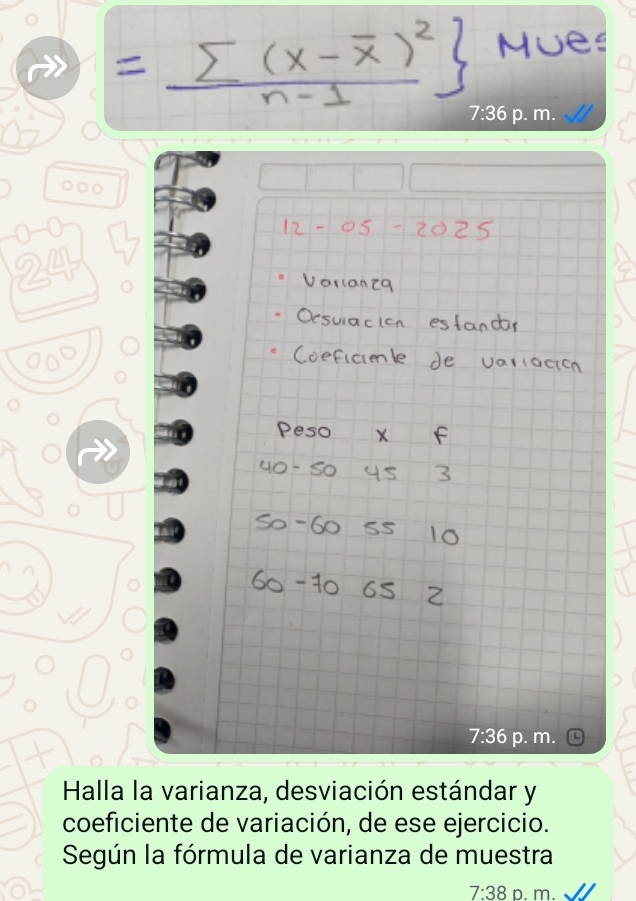 = Σ (x - x̄)² } Mues
n - 1
7:36 p. m.
24
12 - 05 - 2025
• Varianza
• Desviacion estandar
• Coeficiente de variacion
Peso x f
40 - 50 45 3
50 - 60 55 10
60 - 70 65 2
7:36 p. m.
Halla la varianza, desviación estándar y
coeficiente de variación, de ese ejercicio.
Según la fórmula de varianza de muestra
7:38 p. m.